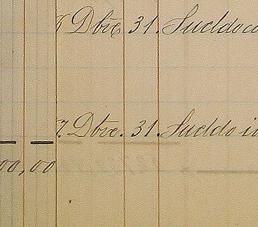 Dbre 31. Sueldo co
7. Dbre. 31. Sueldo i
00,00